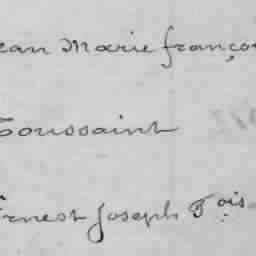 ean Marie franço
Toussaint
Ernest Joseph Fois